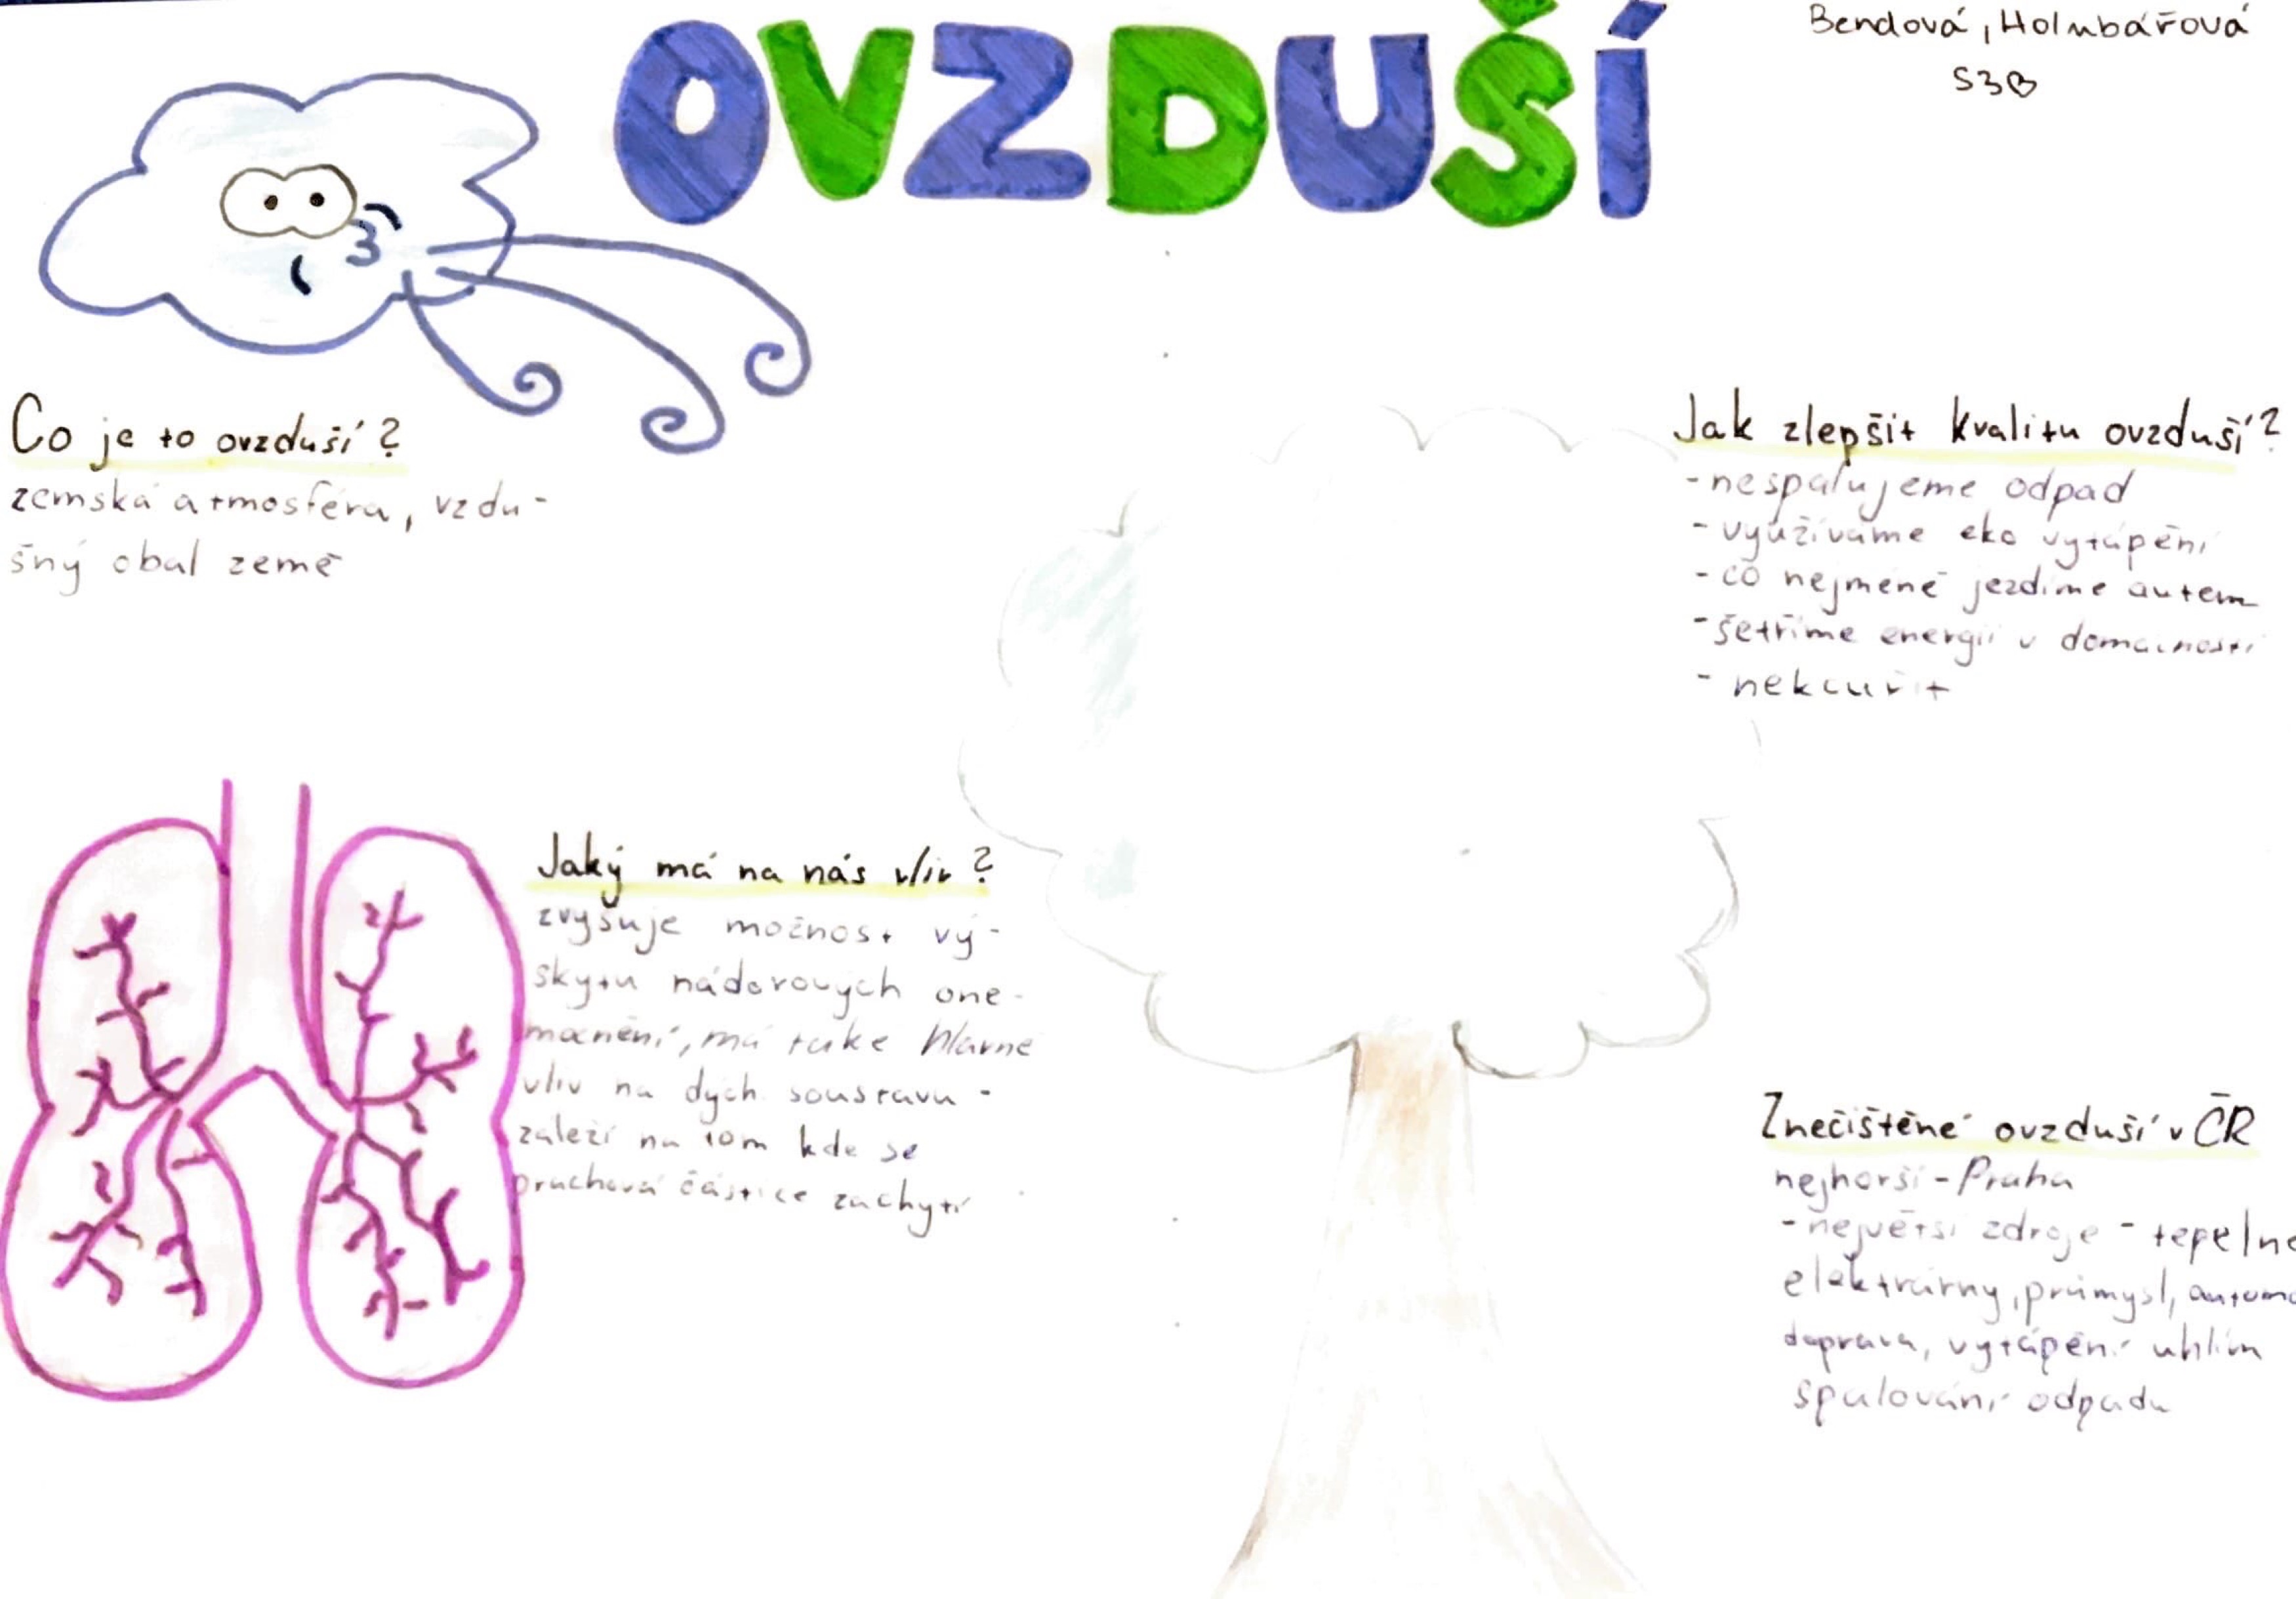 OVZDUŠÍ
Bendová, Holubářová
S3B
Co je to ovzduší?
zemská atmosféra, vzdu-
šný obal země
Jak zlepšit kvalitu ovzduší?
- nespalujeme odpad
- využíváme eko vytápění
- co nejméně jezdíme autem
- šetříme energií v domácnosti
- nekouřit
Jaký má na nás vliv?
zvyšuje možnost vý-
skytu nádorových one-
mocnění, má take hlavně
vliv na dých. soustavu -
záleží na tom kde se
prachová částice zachytí
Znečištěné ovzduší v ČR
nejhorší - Praha
- největší zdroje - tepelné
elektrárny, průmysl,
doprava, vytápění uhlím
spalování odpadu